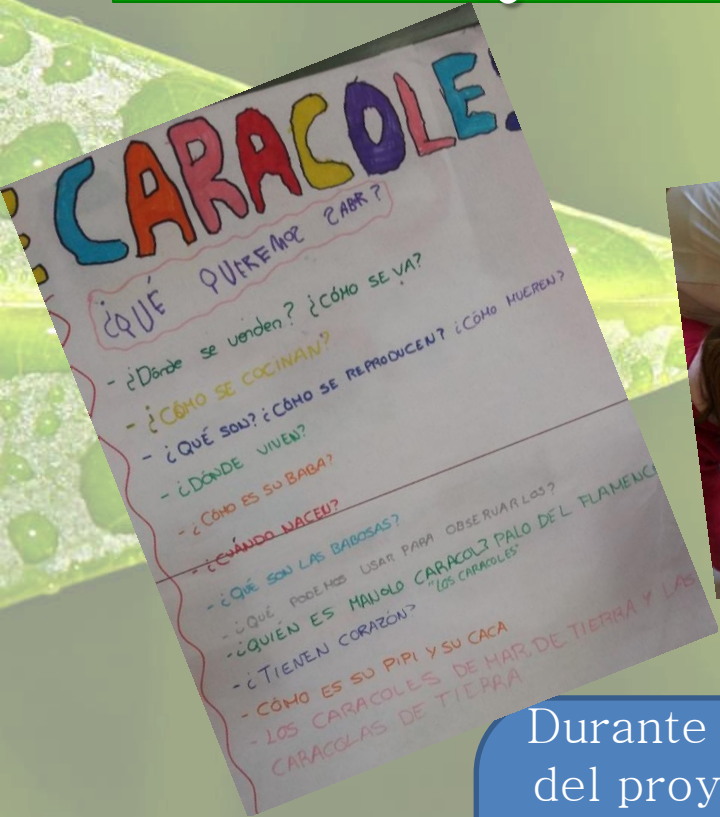 CARACOLE
¿QUÉ QUEREMOS ZABR?
- ¿Dónde se venden? ¿CÓMO SE VA?
- ¿CÓMO SE COCINAN?
- ¿QUÉ SON? ¿CÓMO SE REPRODUCEN? ¿CÓMO MUEREN?
- ¿DÓNDE VIVEN?
- ¿CÓMO ES SU BABA?
- ¿CUÁNDO NACEN?
- ¿QUÉ SON LAS BABOSAS?
- ¿QUÉ PODEMOS USAR PARA OBSERVARLOS?
- ¿QUIÉN ES MANOLO CARACOL? PALO DEL FLAMENCO
"LOS CARACOLES"
- ¿TIENEN CORAZÓN?
- CÓMO ES SU PIPI Y SU CACA
- LOS CARACOLES DE MAR, DE TIERRA Y LAS
CARACOLAS DE TIERRA
Durante
del proy